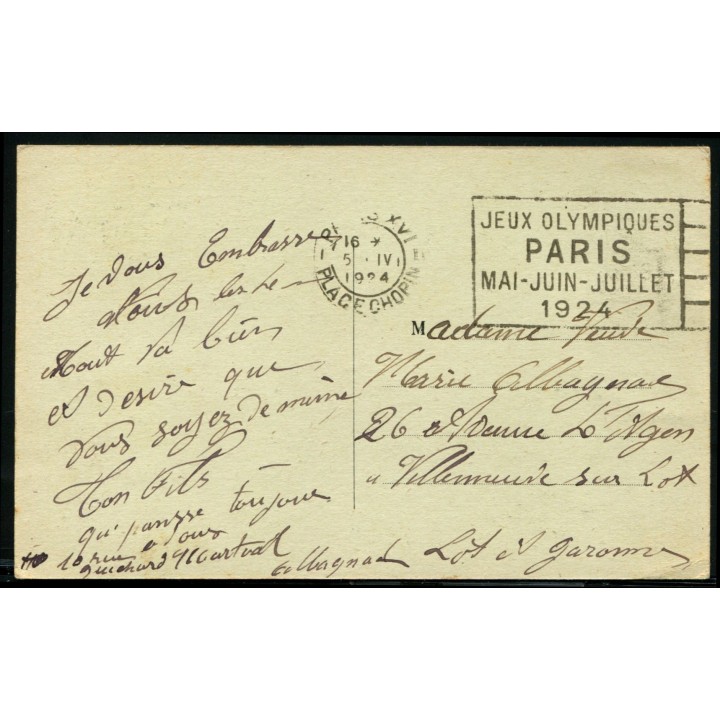 Je vous Embrasse
tous
tout va bien
et desire que
vous soyez de même
ton fils
qui pansse toujour
a vous
10 rue
Guichard
Albagnac
PARIS XVI E
16 *
5 · IV
1924
PLACE CHOPIN
JEUX OLYMPIQUES
PARIS
MAI-JUIN-JUILLET
1924
Madame Veuve
Marie Albagnac
26 Avenue D'Agen
a Villeneuve sur Lot
Lot et Garonne